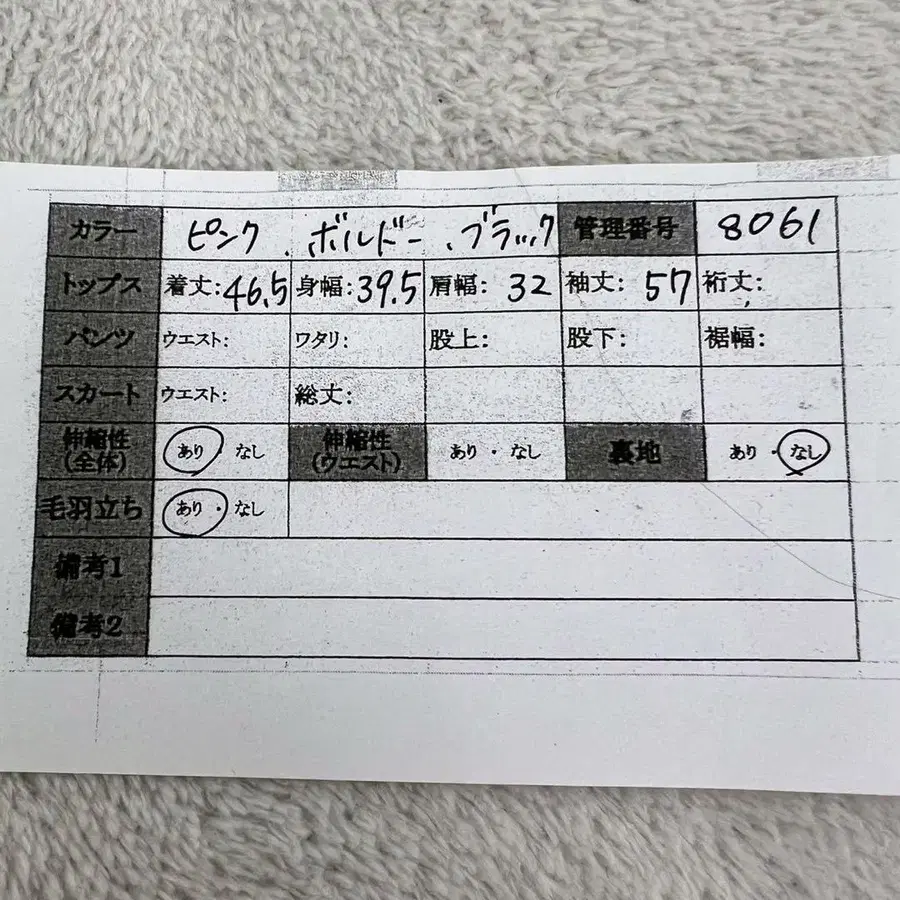 カラー ピンク、ボルドー、ブラック 管理番号 8061
トップス 着丈:46.5 身幅:39.5 肩幅: 32 袖丈: 57 裄丈:
パンツ ウエスト: ワタリ: 股上: 股下: 裾幅:
スカート ウエスト: 総丈:
伸縮性 あり・なし 伸縮性 あり・なし 裏地 あり・なし
(全体) (ウエスト)
毛羽立ち あり・なし
備考1
備考2